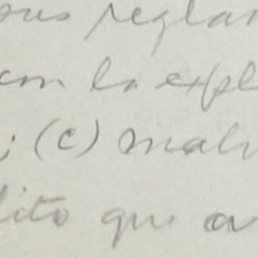 sus reglam
con la expl
; (c) malv
lito que a